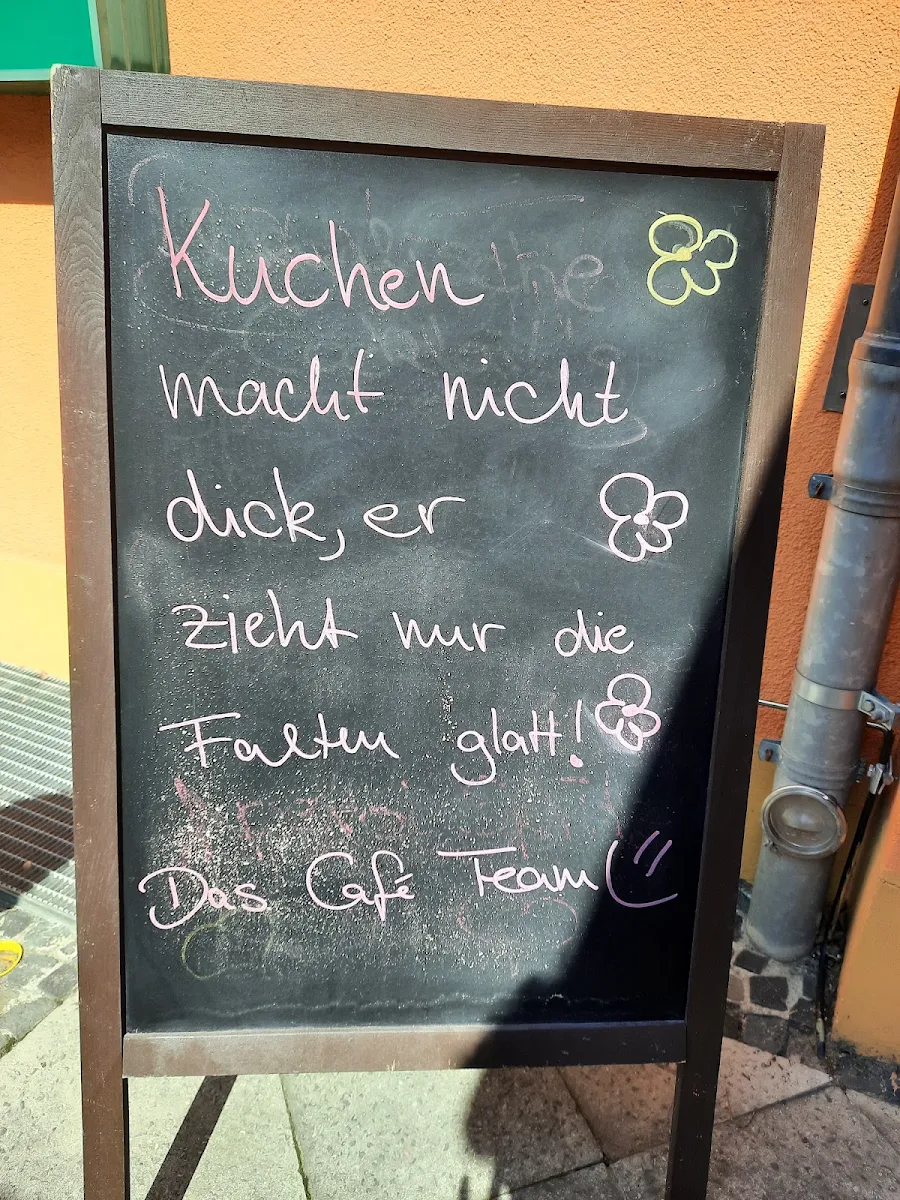 Kuchen
macht nicht
dick, er
zieht nur die
Falten glatt!
Das Café Team